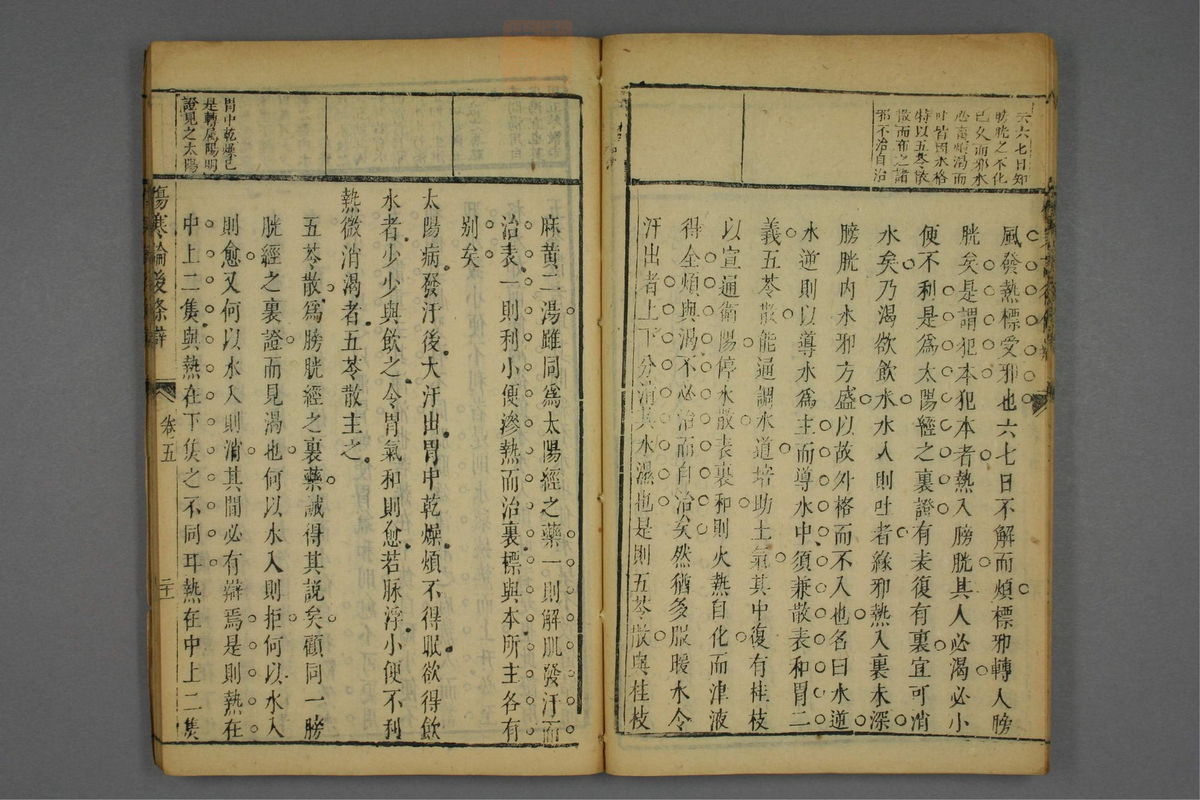 天六七日知
膀胱之不化
已久而邪水
必畜煩渴而
吐皆因水格
特以五苓散
散而布之諸
邪不治自治
風發熱標受邪也六七日不解而煩標邪轉入膀
胱矣是謂犯本犯本者熱入膀胱其人必渴必小
便不利是爲太陽經之裏證有表復有裏宜可消
水矣乃渴欲飲水水入則吐者緣邪熱入裏未深
膀胱内水邪方盛以故外格而不入也名曰水逆
水逆則以導水爲主而導水中須兼散表和胃二
義五苓散能通調水道培助土氣其中復有桂枝
以宣通衛陽停水散表裏和則火熱自化而津液
得全煩與渴不必治而自治矣然猶多服暖水令
汗出者上下分消其水濕也是則五苓散與桂枝
麻黄二湯雖同爲太陽經之藥一則解肌發汗而
治表一則利小便滲熱而治裏標與本所主各有
别矣
太陽病發汗後大汗出胃中乾燥煩不得眠欲得飲
水者少少與飲之令胃氣和則愈若脉浮小便不利
熱微消渴者五苓散主之
胃中乾燥已
是轉屬陽明
證見之太陽
五苓散爲膀胱經之裏藥識得其説矣顧同一膀
胱經之裏證而見渴也何以水入則拒何以水入
則愈又何以水入則消其間必有辯焉是則熱在
中上二焦與熱在下焦之不同耳熱在中上二焦
傷寒論後條辯
卷五
二十一